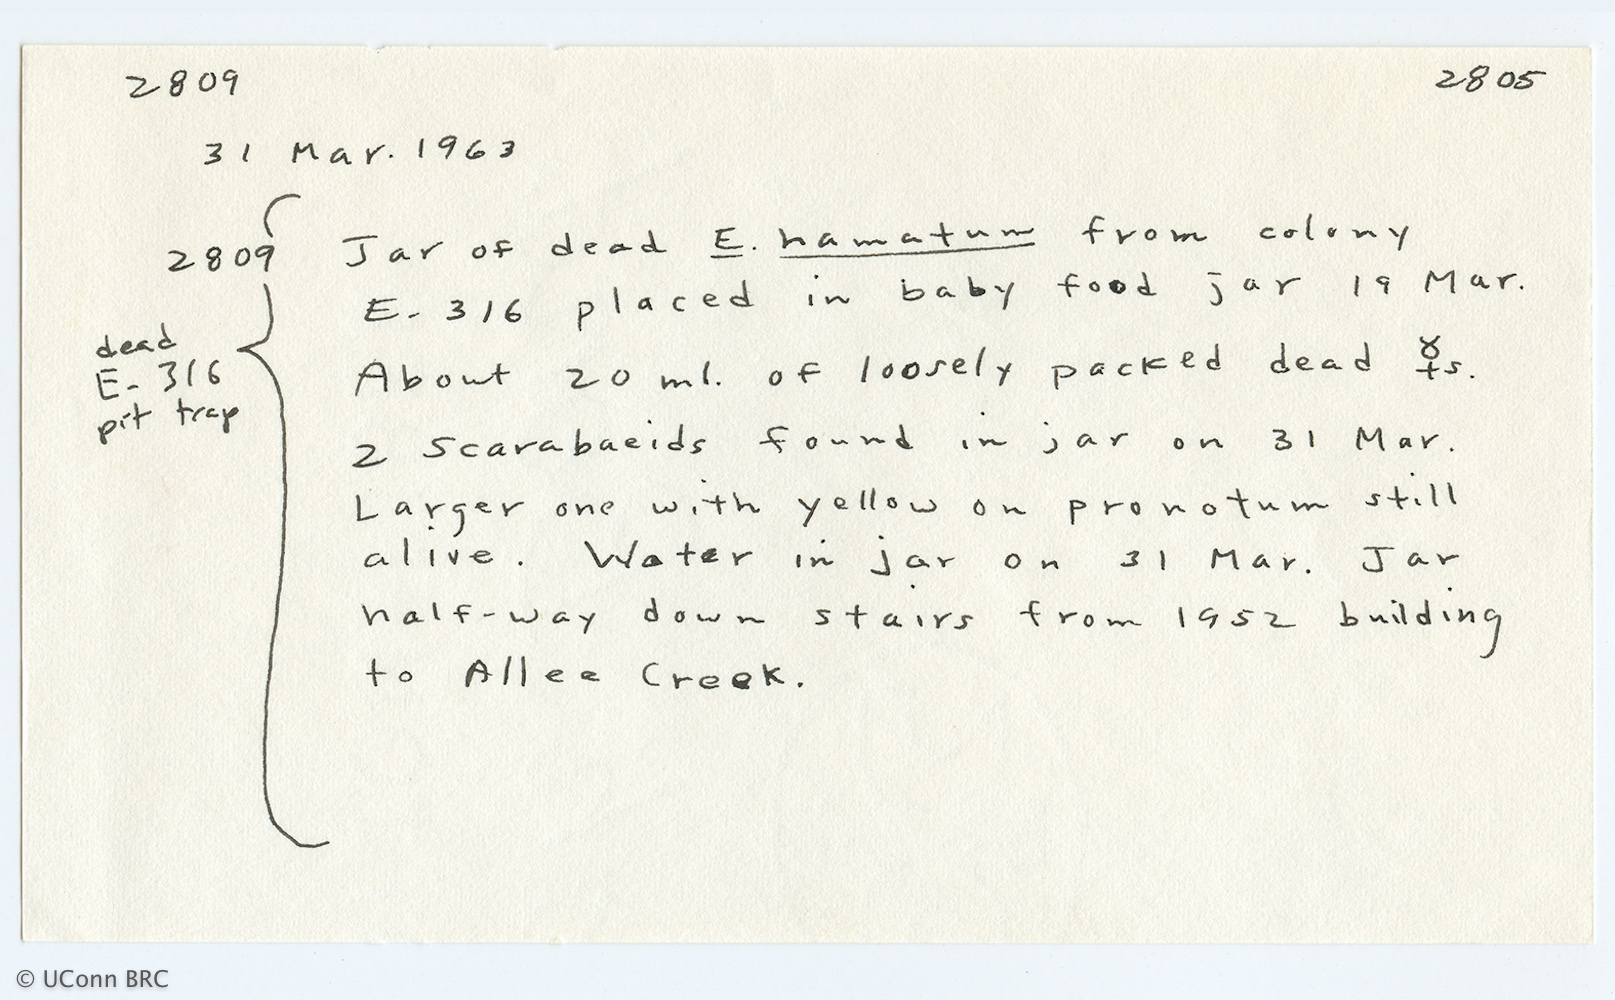 2809 2805
31 Mar. 1963
2809 Jar of dead E. hamatum from colony
E-316 placed in baby food jar 19 Mar.
dead
E-316
pit trap
About 20 ml. of loosely packed dead ☿s.
2 Scarabaeids found in jar on 31 Mar.
Larger one with yellow on pronotum still
alive. Water in jar on 31 Mar. Jar
half-way down stairs from 1952 building
to Allee Creek.
© UConn BRC